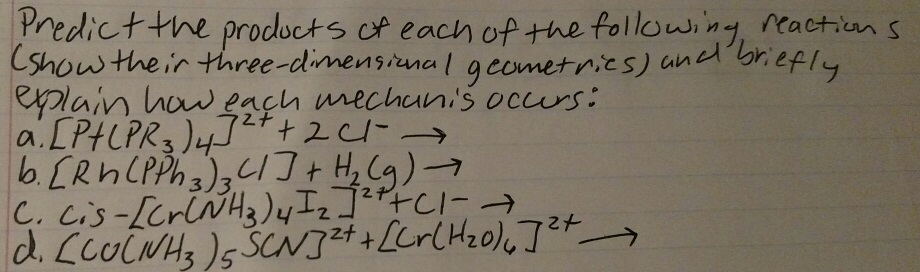 Predict the products of each of the following reactions
(show their three-dimensional geometrics) and briefly
explain how each mechanis occurs:
a. [Pt(PR₃)₄]²⁺ + 2Cl⁻ →
b. [Rh(PPh₃)₃Cl] + H₂(g) →
c. cis-[Cr(NH₃)₄I₂]²⁺ + Cl⁻ →
d. [CO(NH₃)₅SCN]²⁺ + [Cr(H₂O)₆]²⁺ →